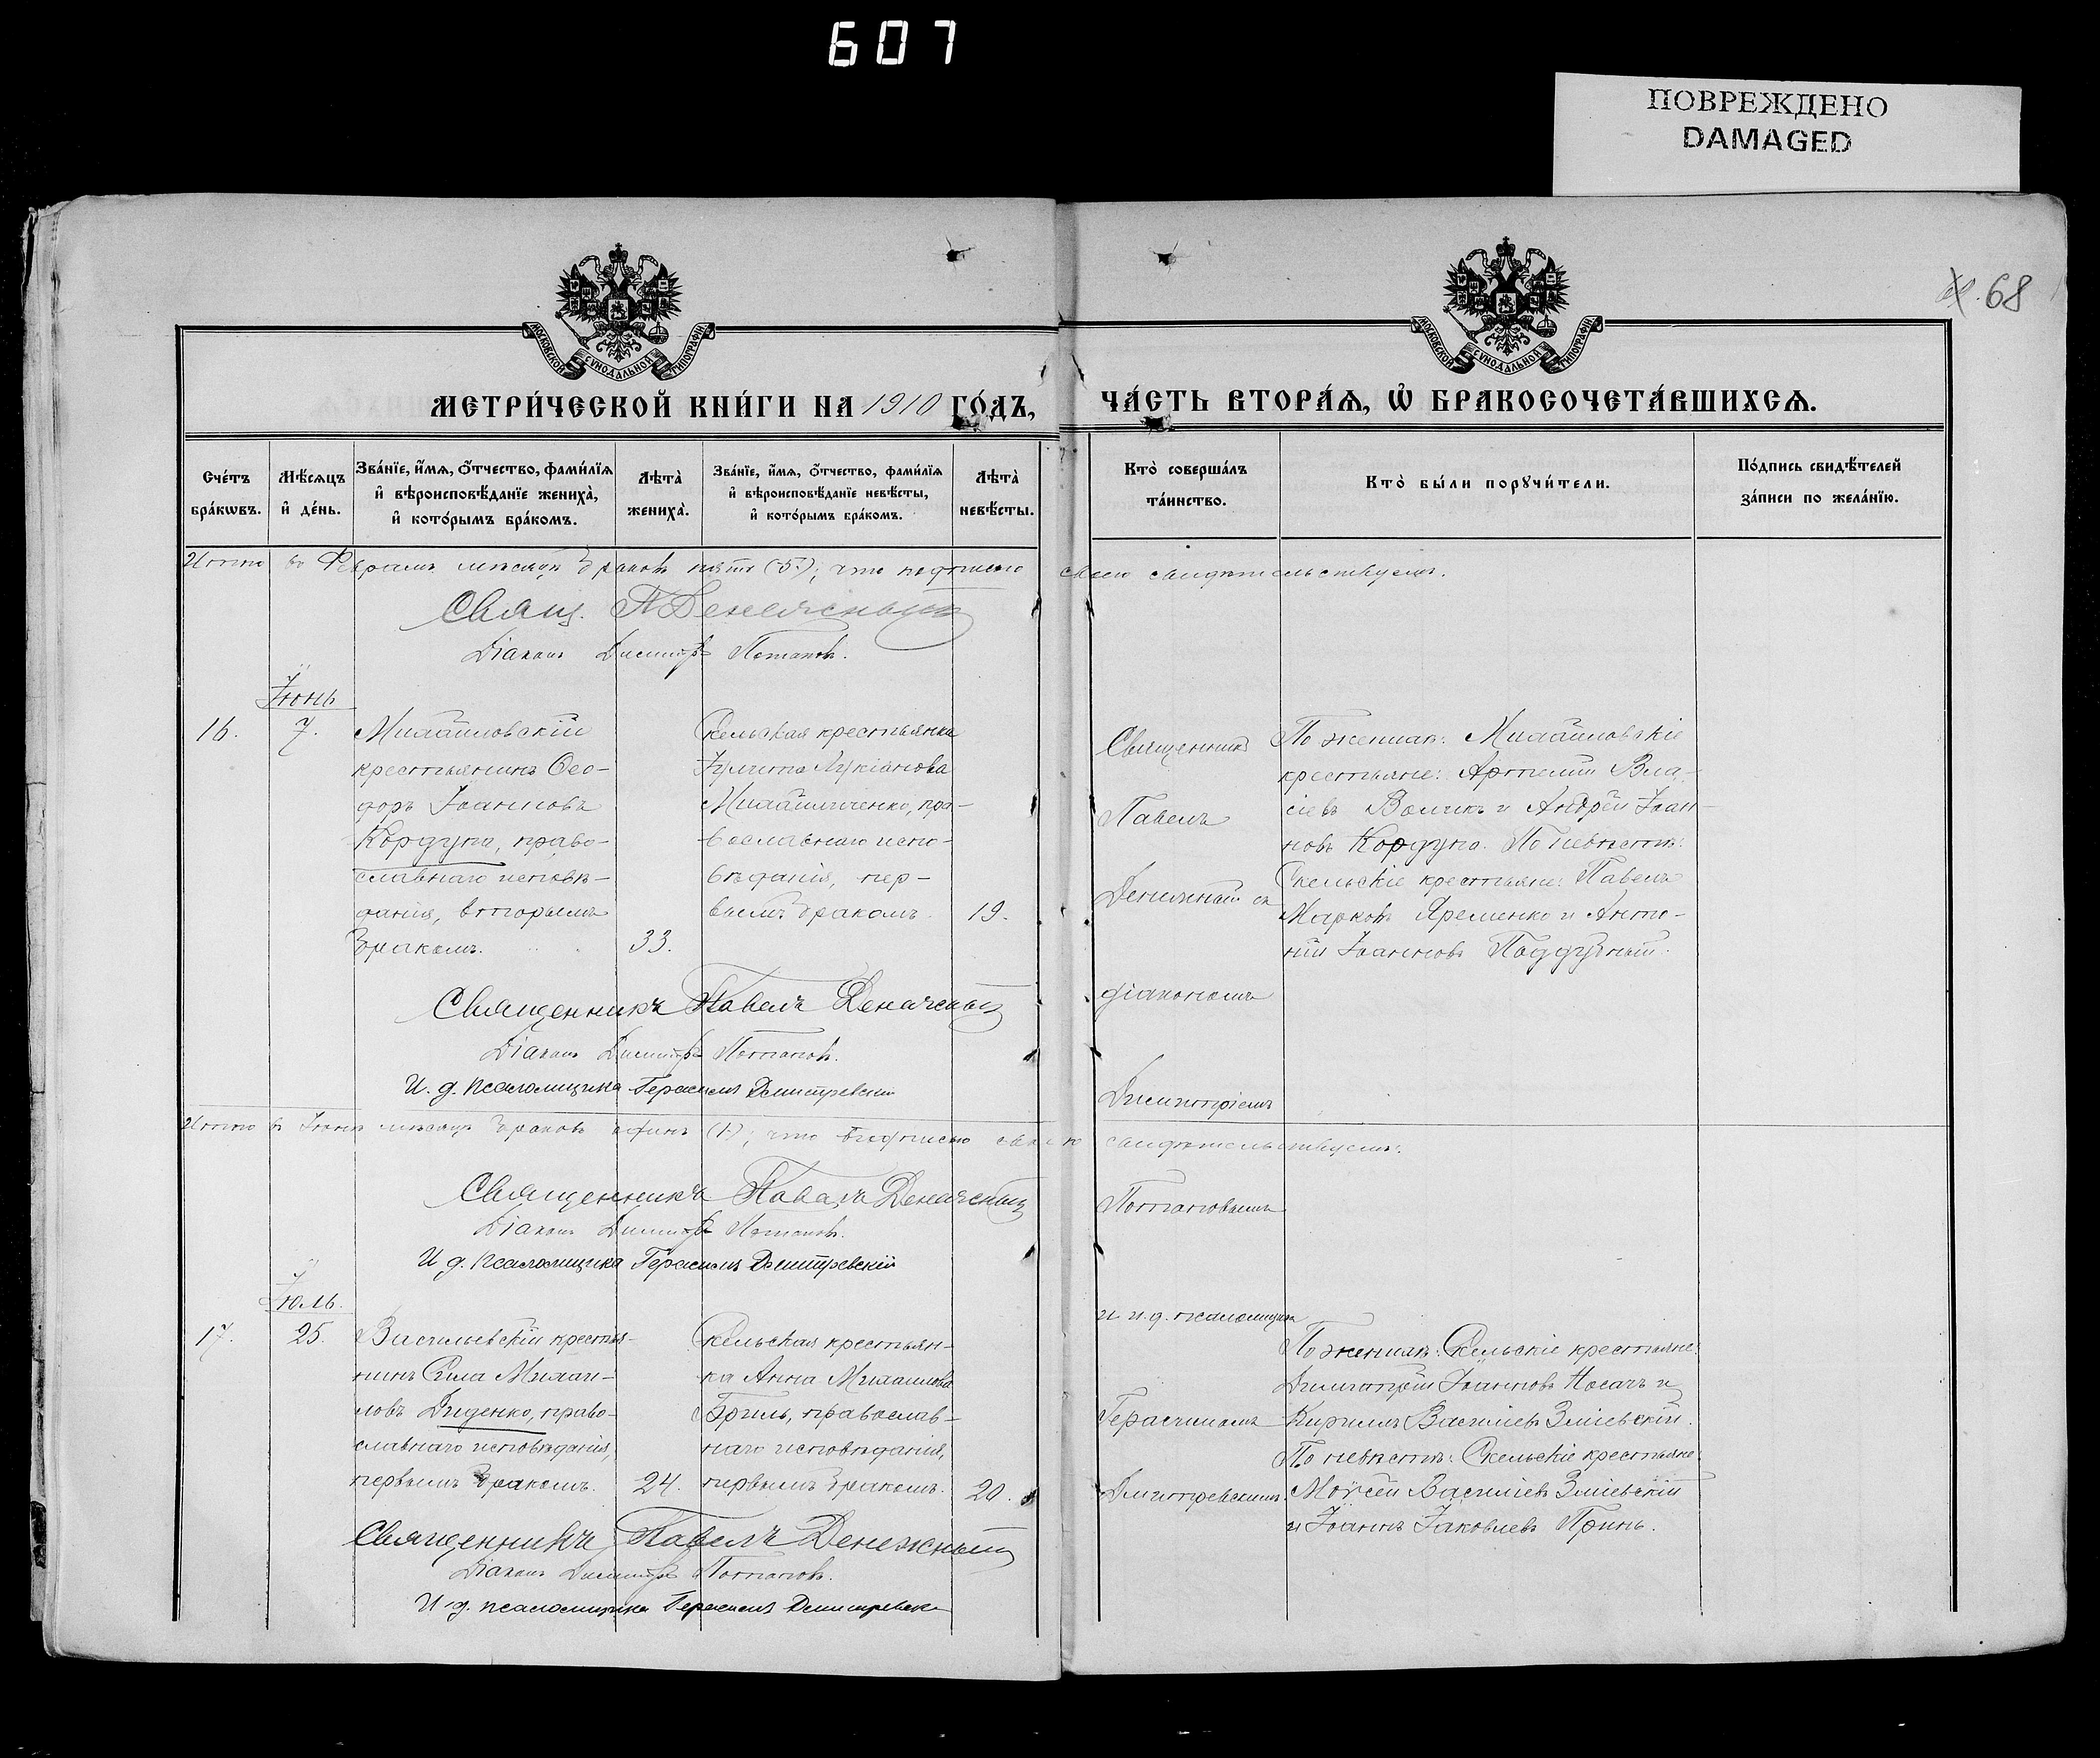 607
ПОВРЕЖДЕНО
DAMAGED
68
МОСКОВСКОЙ СѴНОДАЛЬНОЙ ТИПОГРАФІИ
МОСКОВСКОЙ СѴНОДАЛЬНОЙ ТИПОГРАФІИ
МЕТРИ́ЧЕСКОЙ КНИ́ГИ НА 1910 ГО́ДЪ,
ЧА́СТЬ ВТОРА́Ѧ, Ѽ БРАКОСОЧЕТА́ВШИХСѦ.
Сче́тъ бра́кѡвъ.
Мѣ́сѧцъ и҆ де́нь.
Зва́нїе, и҆́мѧ, ѻ҆́тчество, фами́лїѧ
и҆ вѣроисповѣ́данїе жениха̀,
и҆ кото́рымъ бра́комъ.
Лѣта̀ жениха̀.
Зва́нїе, и҆́мѧ, ѻ҆́тчество, фами́лїѧ
и҆ вѣроисповѣ́данїе невѣ́сты,
и҆ кото́рымъ бра́комъ.
Лѣта̀ невѣ́сты.
Кто̀ соверша́лъ
та́инство.
Кто̀ бы́ли порꙋчи́тели.
По́дпись свидѣ́телей
за́писи по жела́нїю.
Итого въ Февралѣ мѣсяцѣ браковъ пять (5); что подписью своею свидѣтельствуемъ.
Свящ. П Денежный
Діаконъ Димитрій Потаповъ.
Іюнь
16.
7.
Михайловскій
крестьянинъ Ѳео-
доръ Іоанновъ
Кордупа, право-
славнаго исповѣ-
данія, вторымъ
бракомъ.
33.
Скельская крестьянка
Іулита Лукіанова
Михайличенко, пра-
вославнаго испо-
вѣданія, пер-
вымъ бракомъ.
19.
Священникъ
Павелъ
Денежный съ
діакономъ
Димитріемъ
Потаповымъ
и и. д. псаломщика
Герасимомъ
Дмитревскимъ.
По женихѣ: Михайловскіе
крестьяне: Артемій Вла-
сіевъ Воликъ и Андрей Іоан-
новъ Кордупа. По невѣстѣ:
Скельскіе крестьяне: Павелъ
Марковъ Яременко и Анто-
ній Іоанновъ Поддубный.
Священникъ Павелъ Денежный
Діаконъ Димитрій Потаповъ.
И. д. псаломщика Герасимъ Дмитревскій
Итого въ Іюнѣ мѣсяцѣ браковъ одинъ (1); что подписью своею свидѣтельствуемъ.
Священникъ Павелъ Денежный
Діаконъ Димитрій Потаповъ.
И. д. псаломщика Герасимъ Дмитревскій
Іюль.
17.
25.
Васильевскій крестья-
нинъ Сила Михаи-
ловъ Диденко, право-
славнаго исповѣданія,
первымъ бракомъ.
24.
Скельская крестьян-
ка Анна Михаилова
Бриль, православ-
наго исповѣданія,
первымъ бракомъ.
20.
По женихѣ: Скельскіе крестьяне:
Димитрій Іоанновъ Носачъ и
Кириллъ Василіевъ Зміевскій.
По невѣстѣ: Скельскіе крестьяне:
Мойсей Василіевъ Зміевскій
и Іоаннъ Іаковлевъ Принь.
Священникъ Павелъ Денежный
Діаконъ Димитрій Потаповъ.
И. д. псаломщика Герасимъ Дмитревскій